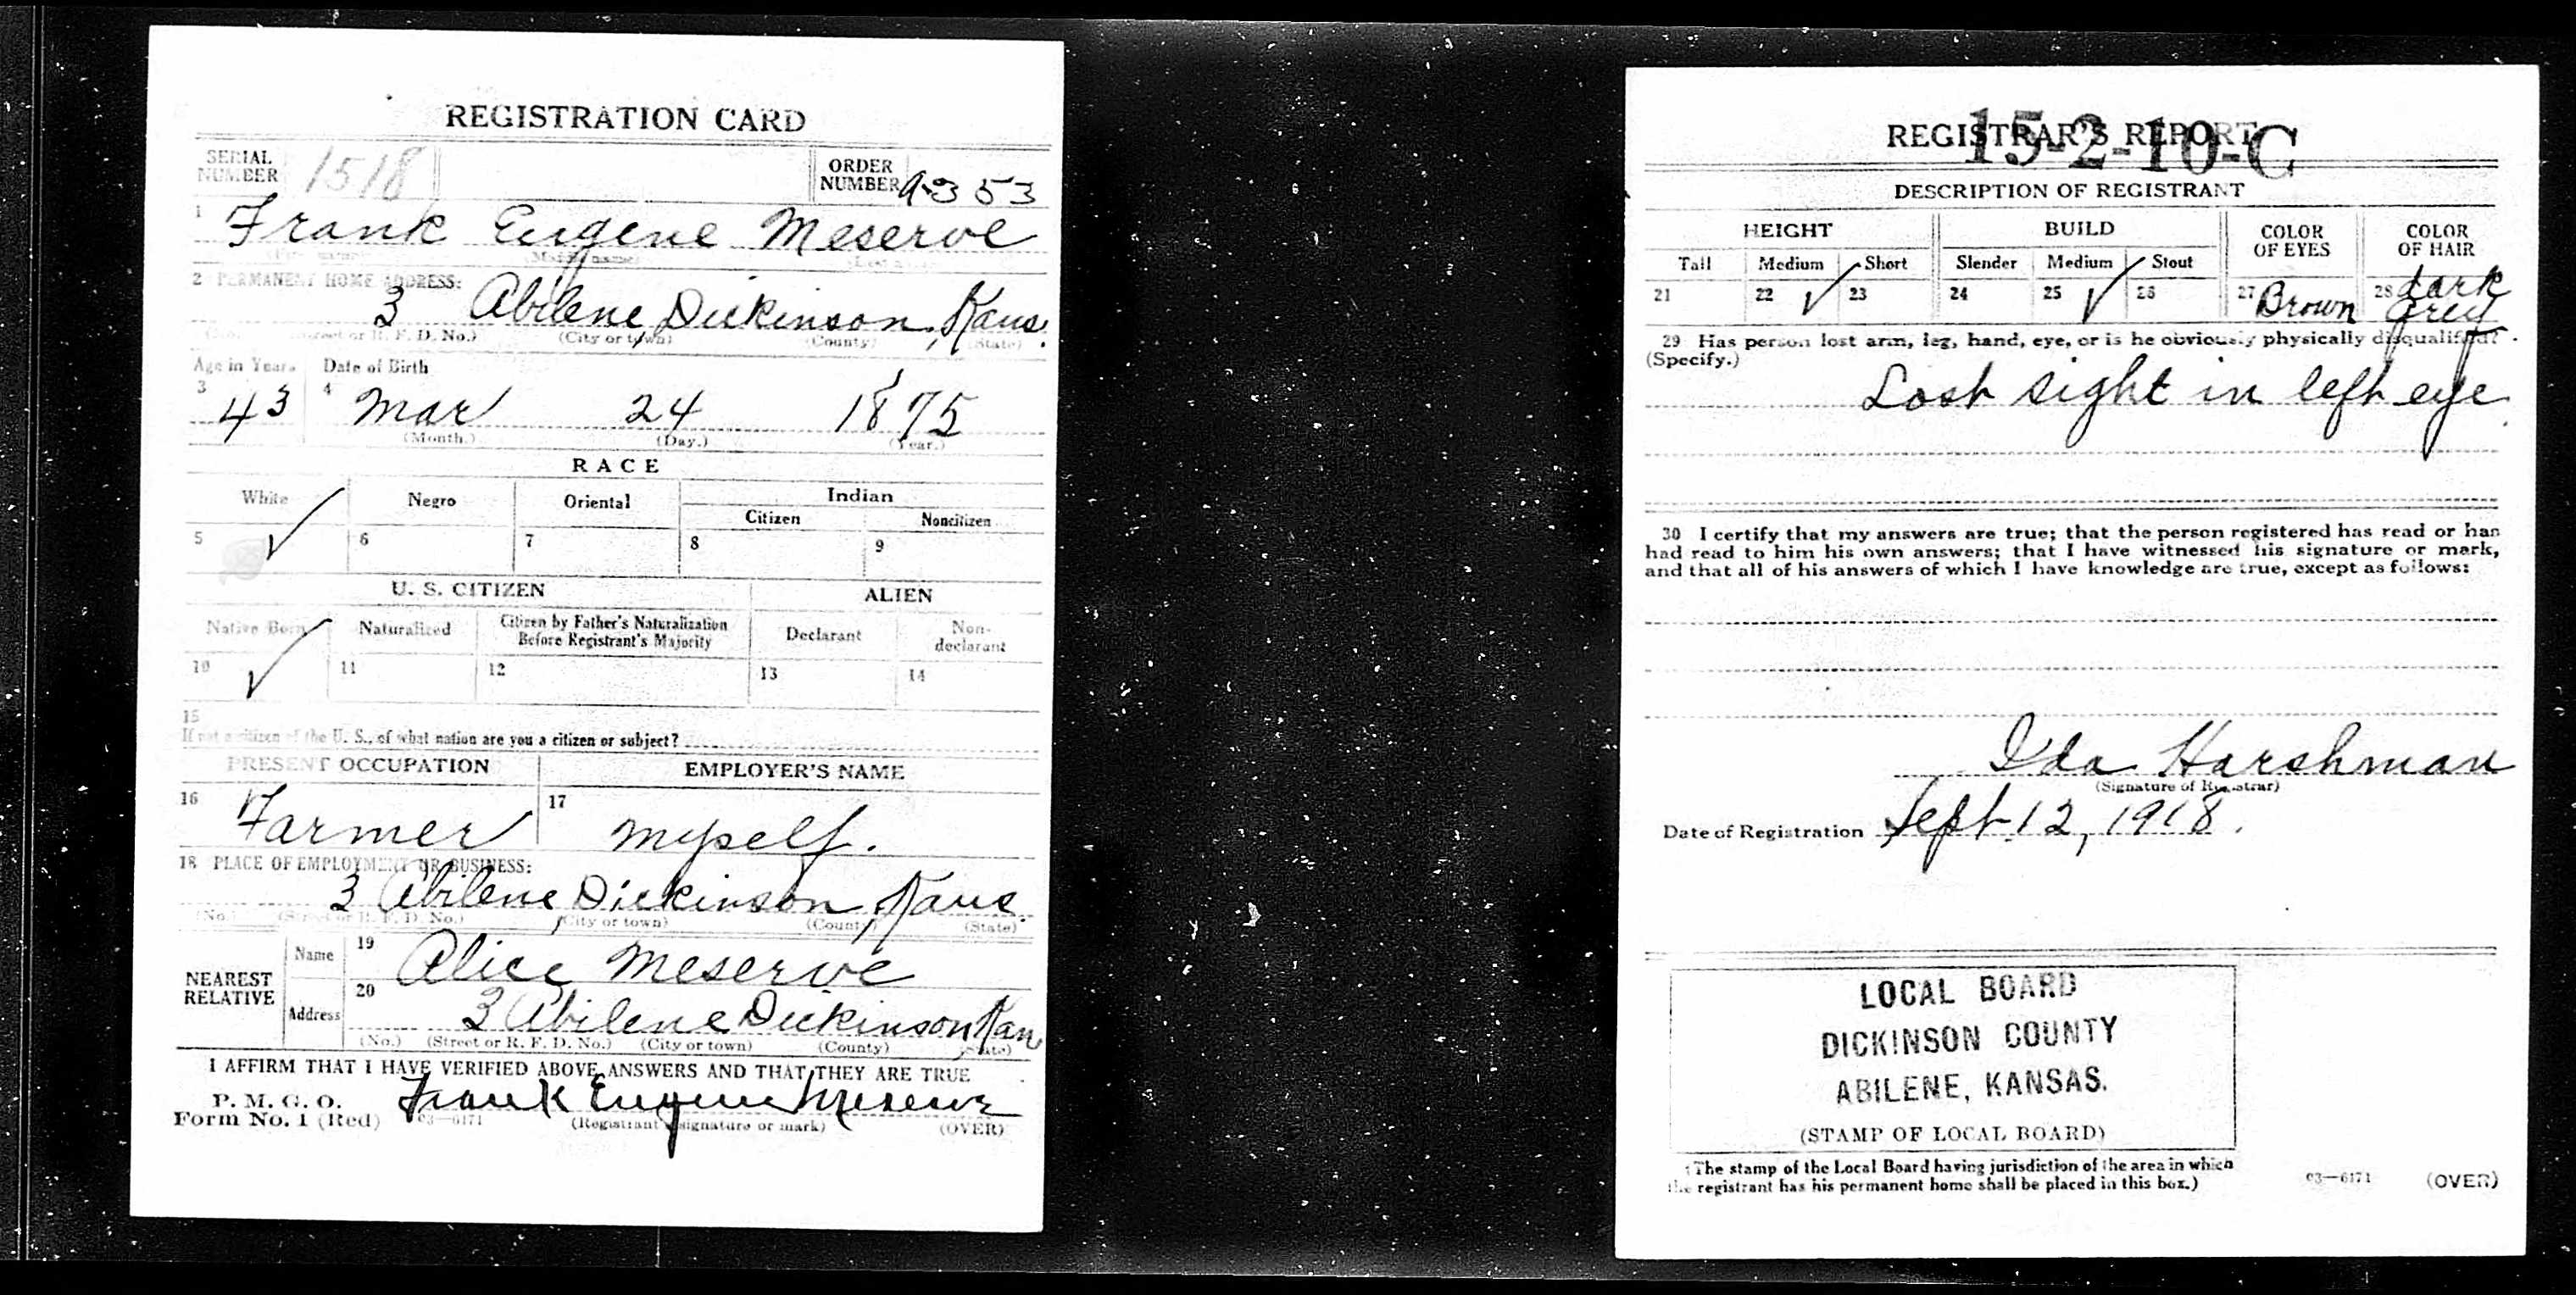 REGISTRATION CARD
SERIAL NUMBER 1518 ORDER NUMBER 2353
1 Frank Eugene Meserve
(First name) (Middle name) (Last name)
2 PERMANENT HOME ADDRESS:
3 Abilene, Dickinson, Kans.
(No.) (Street or R. F. D. No.) (City or town) (County) (State)
Age in Years Date of Birth
3 43 4 Mar 24 1875
(Month.) (Day.) (Year.)
RACE
White Negro Oriental Indian
Citizen Noncitizen
5 ✓ 6 7 8 9
U. S. CITIZEN ALIEN
Native Born Naturalized Citizen by Father's Naturalization Before Registrant's Majority Declarant Non-declarant
10 ✓ 11 12 13 14
15
If not a citizen of the U. S., of what nation are you a citizen or subject?
PRESENT OCCUPATION EMPLOYER'S NAME
16 Farmer 17 myself.
18 PLACE OF EMPLOYMENT OR BUSINESS:
3 Abilene, Dickinson, Kans.
(No.) (Street or R. F. D. No.) (City or town) (County) (State)
NEAREST RELATIVE Name 19 Alice Meserve
Address 20 3 Abilene Dickinson, Kan
(No.) (Street or R. F. D. No.) (City or town) (County) (State)
I AFFIRM THAT I HAVE VERIFIED ABOVE ANSWERS AND THAT THEY ARE TRUE
P. M. G. O.
Form No. 1 (Red) 03—6171 Frank Eugene Meserve
(Registrant's signature or mark) (OVER)
15-2-10-C
REGISTRAR'S REPORT
DESCRIPTION OF REGISTRANT
HEIGHT BUILD COLOR OF EYES COLOR OF HAIR
Tall Medium Short Slender Medium Stout
21 22 ✓ 23 24 25 ✓ 26 27 Brown 28 dark grey
29 Has person lost arm, leg, hand, eye, or is he obviously physically disqualified?
(Specify.)
Lost sight in left eye.
30 I certify that my answers are true; that the person registered has read or has
had read to him his own answers; that I have witnessed his signature or mark,
and that all of his answers of which I have knowledge are true, except as follows:
Ida Harshman
(Signature of Registrar)
Date of Registration Sept. 12, 1918.
LOCAL BOARD
DICKINSON COUNTY
ABILENE, KANSAS.
(STAMP OF LOCAL BOARD)
(The stamp of the Local Board having jurisdiction of the area in which
the registrant has his permanent home shall be placed in this box.)
03—6171 (OVER)